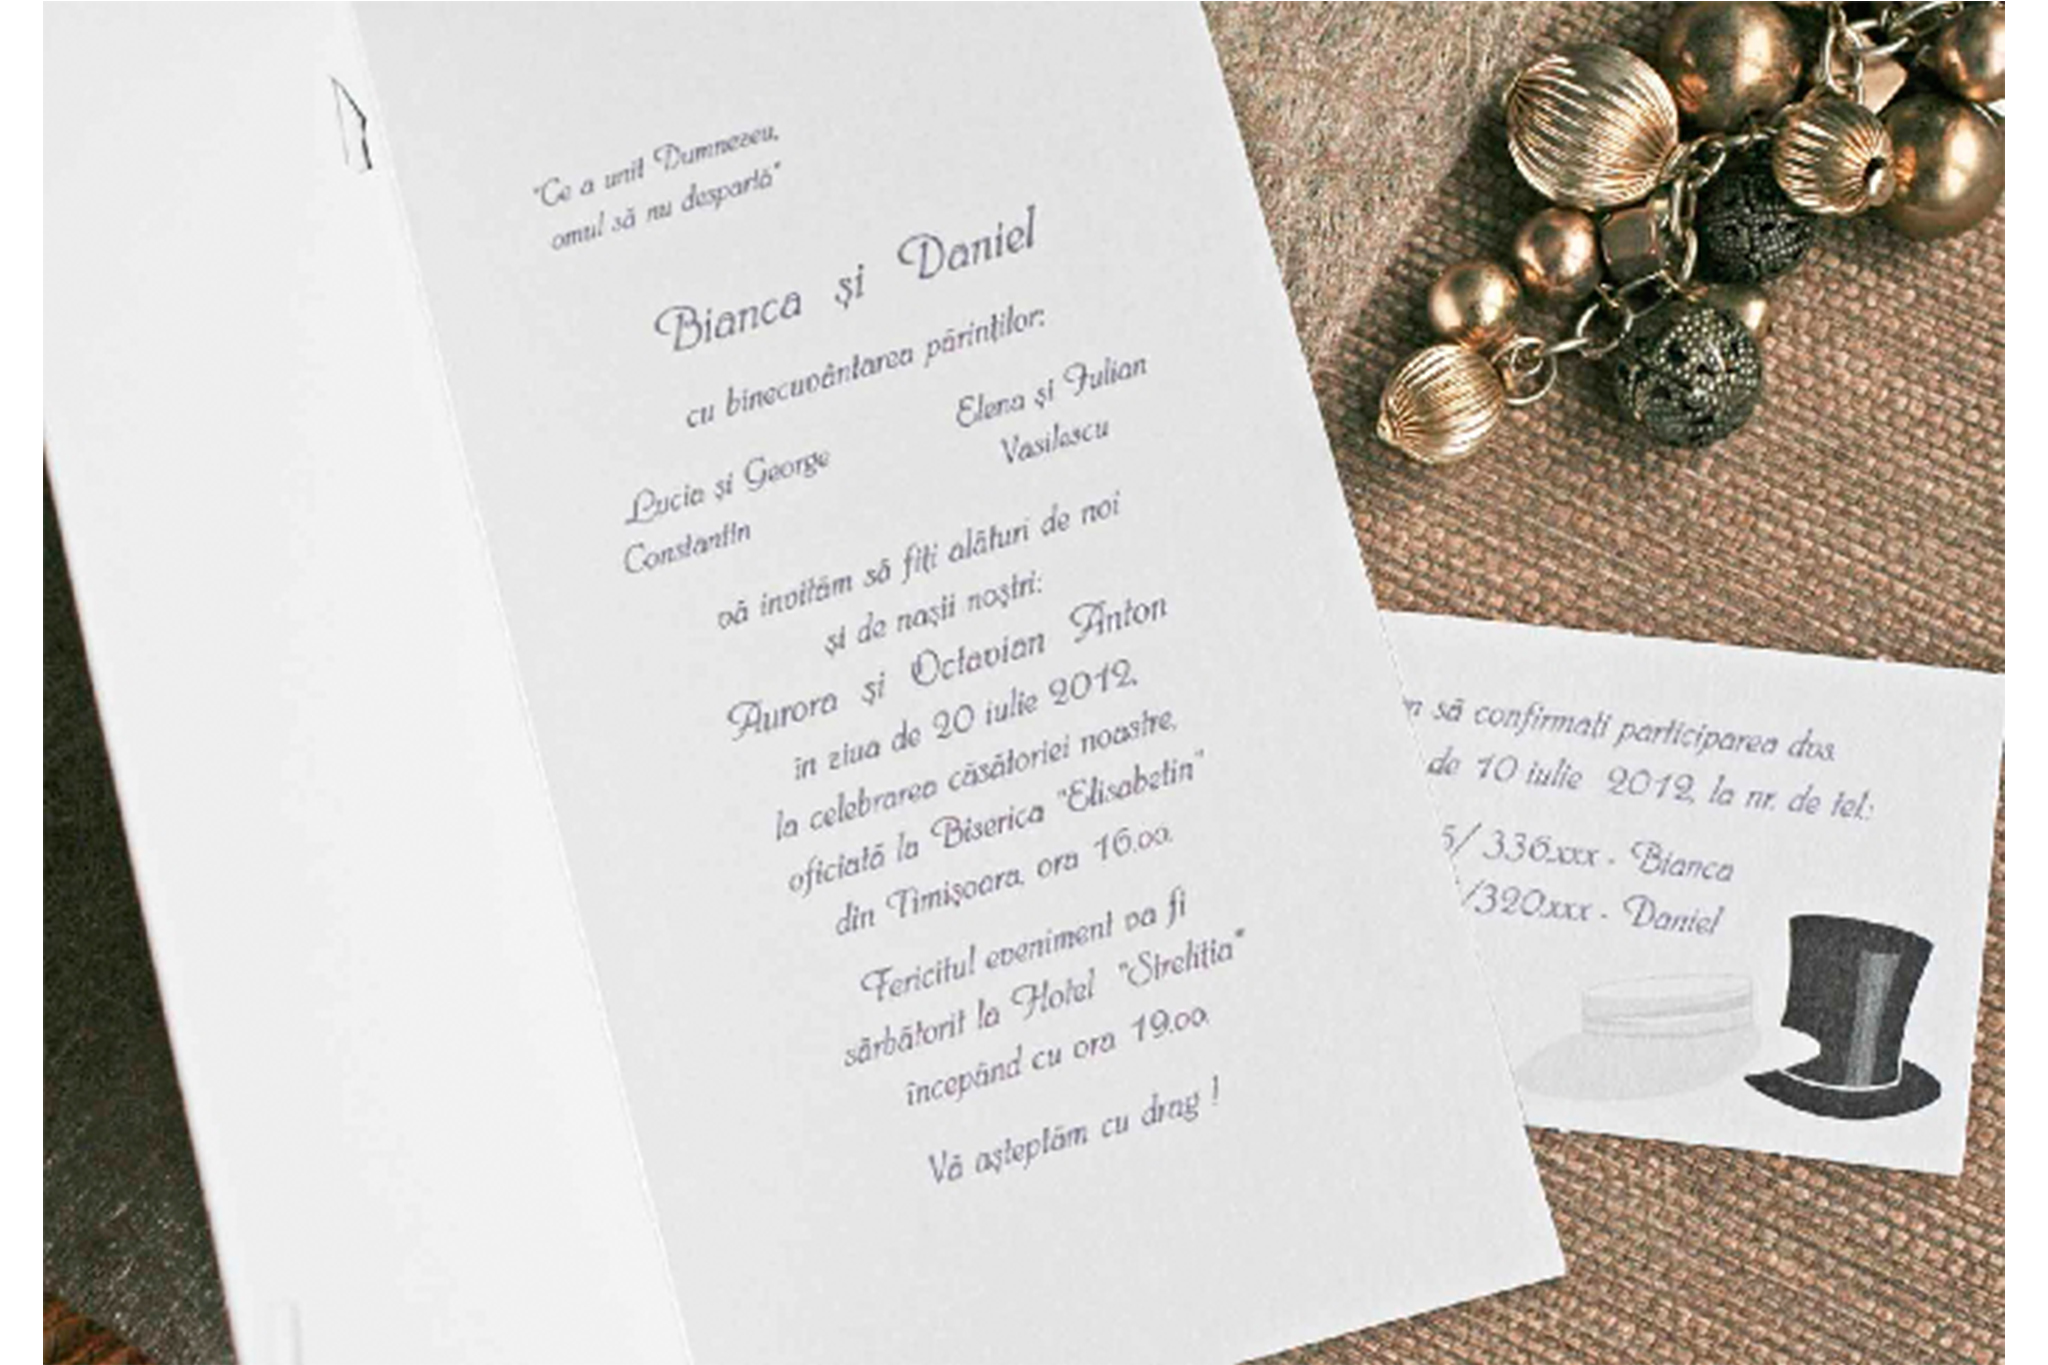 "Ce a unit Dumnezeu,
omul să nu despartă"
Bianca și Daniel
cu binecuvântarea părinților:
Lucia și George
Constantin
Elena și Iulian
Vasilescu
vă invităm să fiți alături de noi
și de nașii noștri:
Aurora și Octavian Anton
în ziua de 20 iulie 2012,
la celebrarea căsătoriei noastre,
oficiată la Biserica "Elisabetin"
din Timișoara, ora 16.oo.
Fericitul eveniment va fi
sărbătorit la Hotel "Strelitia"
începând cu ora 19.oo.
Vă așteptăm cu drag !
să confirmati participarea dvs.
de 10 iulie 2012, la nr. de tel.:
5/ 336.xxx - Bianca
/320.xxx - Daniel